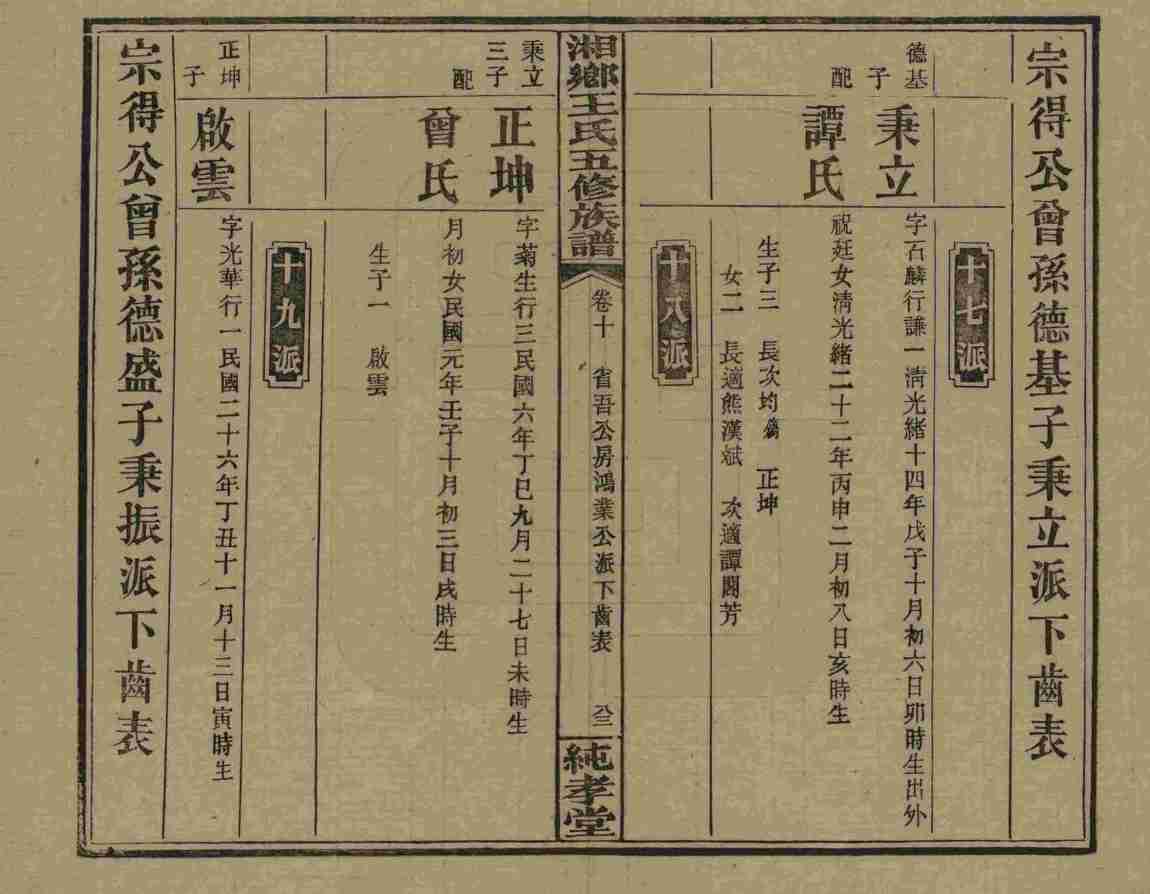 宗得公曾孫德基子秉立派下齒表
十七派
德基
子
秉立
字石麟行謙一清光緒十四年戊子十月初六日卯時生出外
配
譚氏
祝廷女清光緒二十二年丙申二月初八日亥時生
生子三 長次均殤 正坤
女二 長適熊漢斌 次適譚閏芳
十八派
湘鄉王氏五修族譜
卷十 省吾公房鴻業公派下齒表 八三
純孝堂
秉立
三子
正坤
字菊生行三民國六年丁巳九月二十七日未時生
配
曾氏
月初女民國元年壬子十月初三日戌時生
生子一 啟雲
十九派
正坤
子
啟雲
字光華行一民國二十六年丁丑十一月十三日寅時生
宗得公曾孫德盛子秉振派下齒表